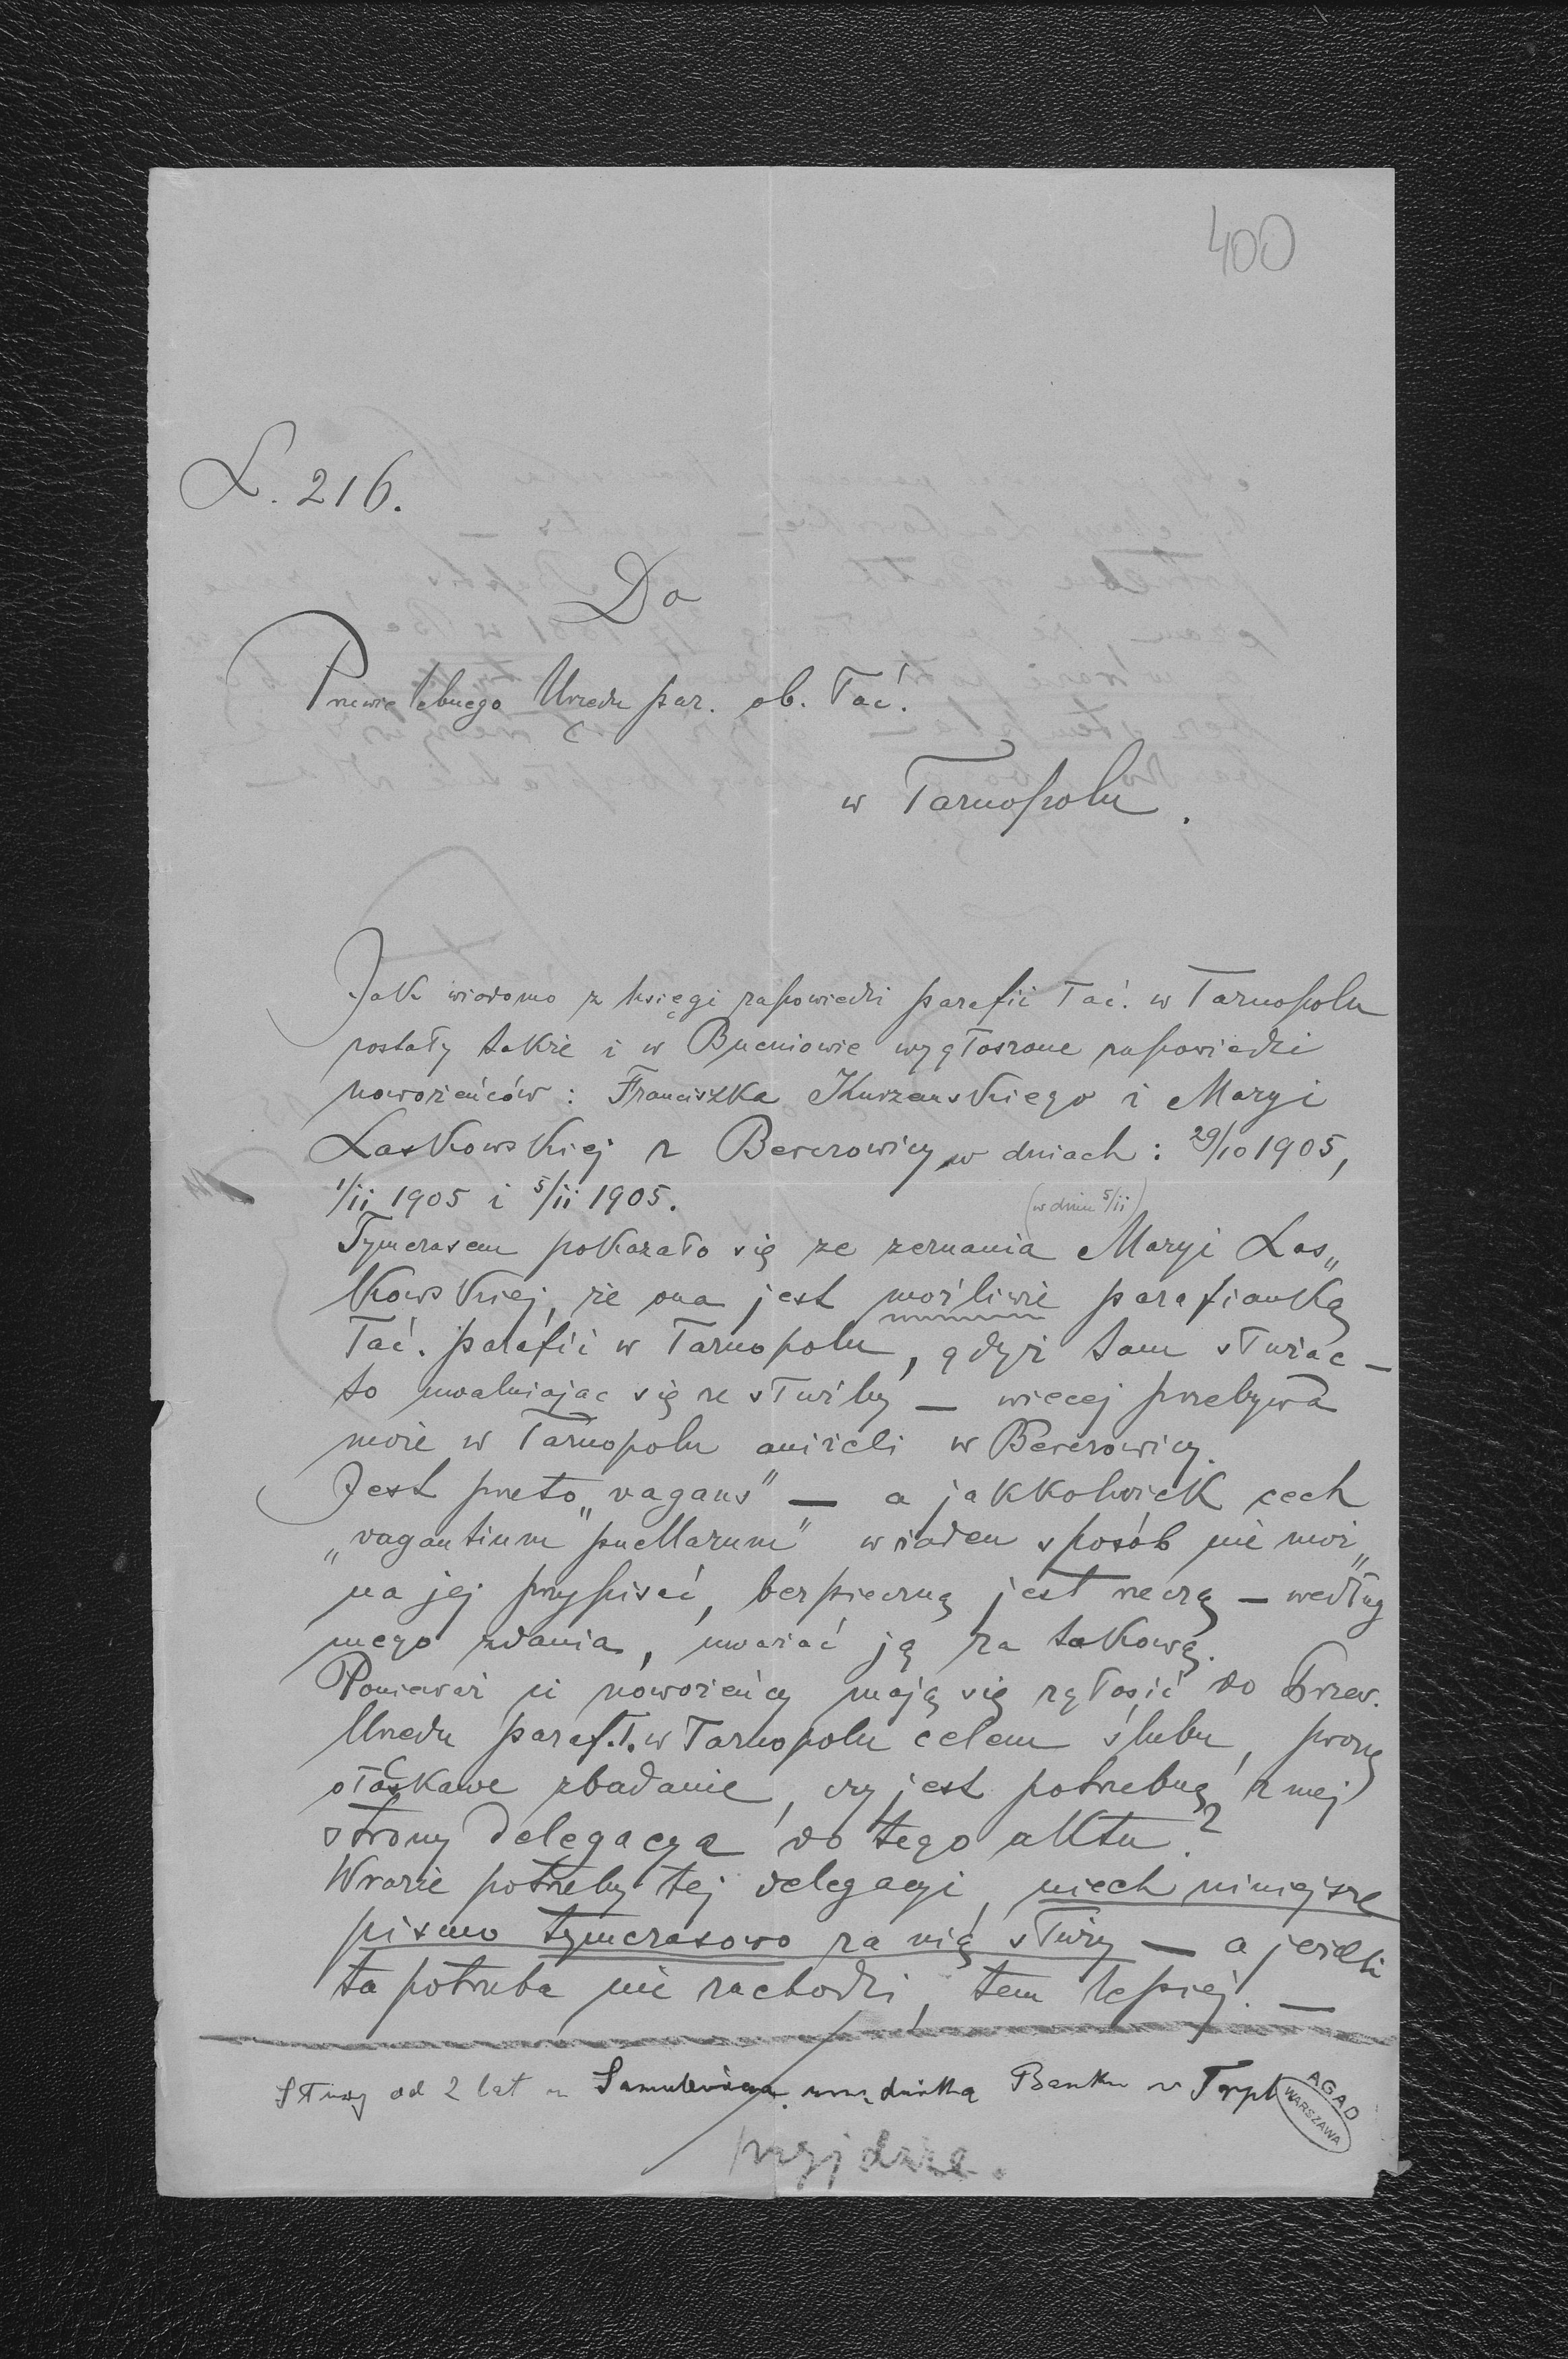 400
L. 216.
Do
Przewielebnego Urzędu par. ob. łać.
w Tarnopolu.
Jak wiadomo z księgi zapowiedzi parafii łać. w Tarnopolu
zostały także i w Bucniowie wygłoszone zapowiedzi
nowożeńców: Franciszka Kurzeńskiego i Maryi
Laskowskiej z Berezowicy w dniach: 29/10 1905,
1/11 1905 i 5/11 1905.
(w dniu 5/11)
Tymczasem pokazało się ze zeznania Maryi Las„
kowskiej, że ona jest możliwie parafianką
łać. parafii w Tarnopolu, gdyż tam służąc —
to uwalniając się ze służby — więcej przebywa
może w Tarnopolu aniżeli w Berezowicy.
Jest przeto „vagans" — a jakkolwiek cech
„vagantium puellarum" w żaden sposób nie moż„
na jej przypisać, bezpieczną jest rzeczą — według
mego zdania, uważać ją za takową.
Ponieważ ci nowożeńcy mają się zgłosić do Przew.
Urzędu paraf. ł. w Tarnopolu celem ślubu, proszę
o łaskawe zbadanie, czy jest potrzebną z mej
strony delegacya do tego aktu?
W razie potrzeby tej delegacyi, niech niniejsze
pismo tymczasowo za nią służy — a jeżeli
ta potrzeba nie zachodzi, tem lepiej. —
Służy od 2 lat u urzędnika Banku w Trpl.
przyjdzie.
AGAD
WARSZAWA